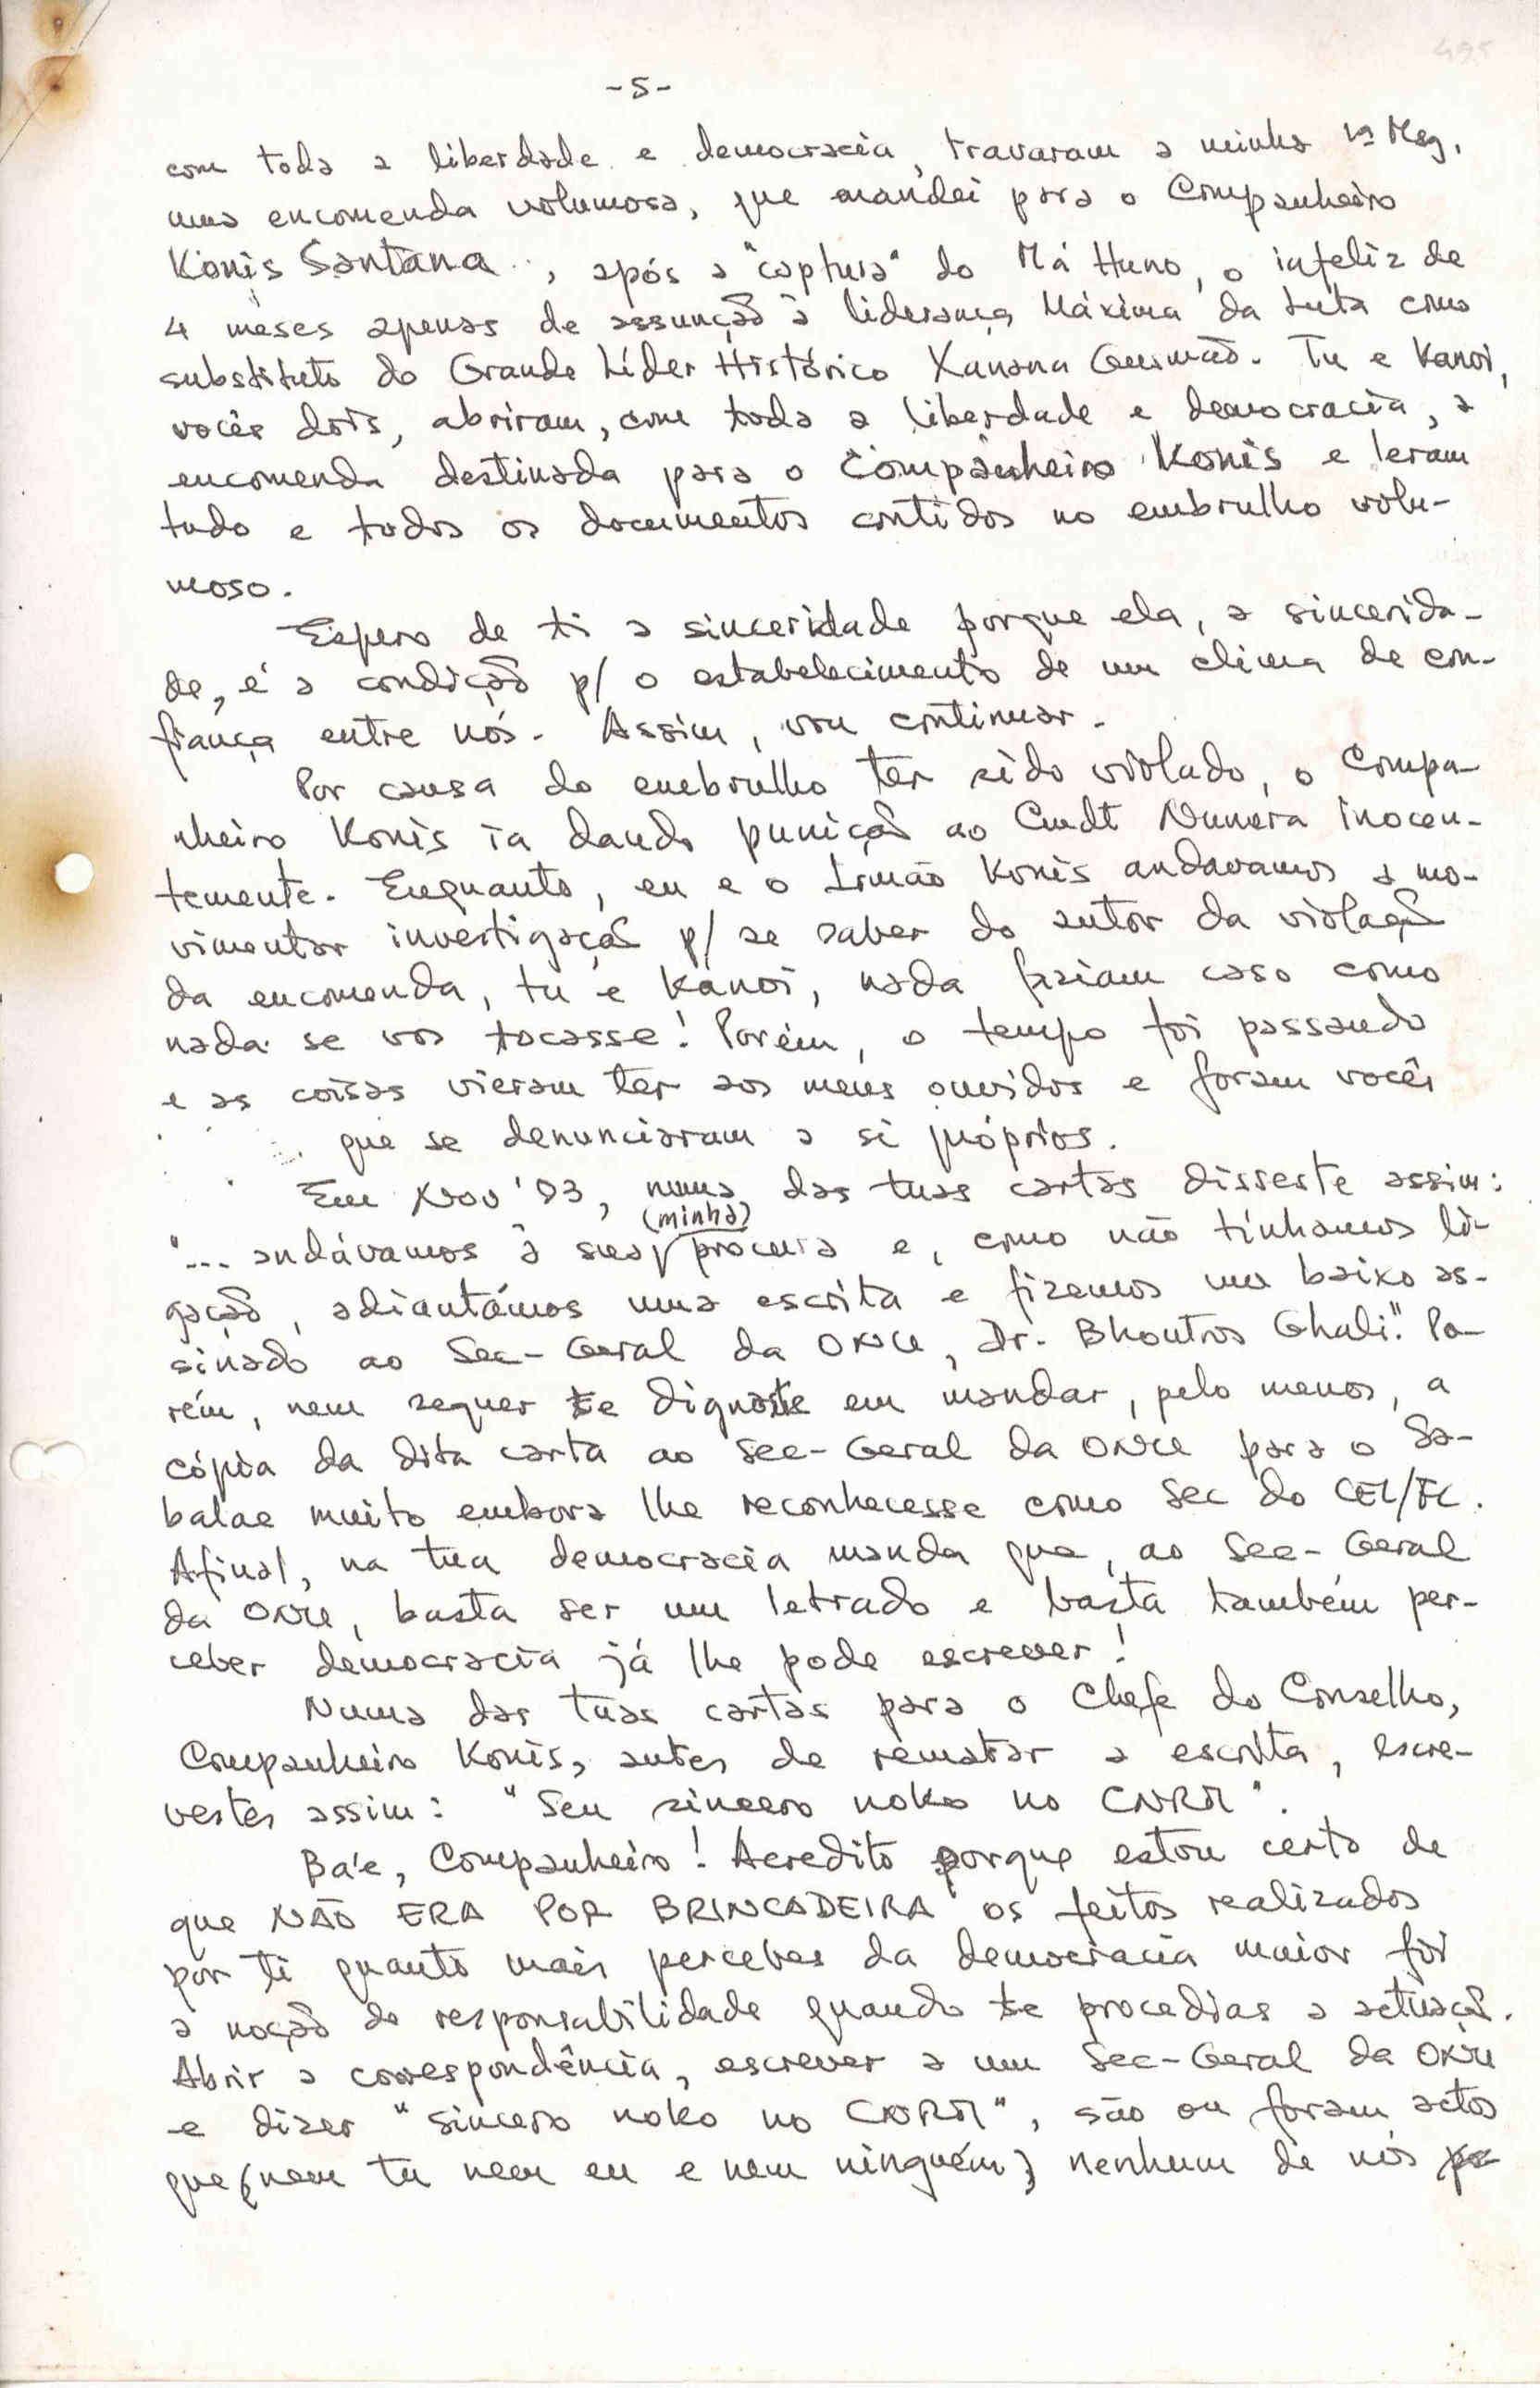 495
-5-
com toda a liberdade e democracia, travaram a minha 1ª Msg,
uma encomenda volumosa, que mandei para o Companheiro
Konis Santana, após a "captura" do Má Huno, o infeliz de
4 meses apenas de assunção à liderança Máxima da Luta como
substituto do Grande Líder Histórico Xanana Gusmão. Tu e Kanoi,
vocês dois, abriram, com toda a liberdade e democracia, a
encomenda destinada para o Companheiro Konis e leram
tudo e todos os documentos contidos no embrulho volu-
moso.
Espero de ti a sinceridade porque ela, a sincerida-
de, é a condição p/ o estabelecimento de um clima de con-
fiança entre nós. Assim, vou continuar.
Por causa do embrulho ter sido violado, o Compa-
nheiro Konis ia dando punição ao Cmdt Nunera inocen-
temente. Enquanto, eu e o Irmão Konis andavamos a mo-
vimentar investigação p/ se saber do autor da violação
da encomenda, tu e Kanoi, nada faziam caso como
nada se vos tocasse! Porém, o tempo foi passando
e as coisas vieram ter aos meus ouvidos e foram vocês
que se denunciaram a si próprios.
Em Nov '93, numa das tuas cartas disseste assim:
(minha)
"... andávamos à sua procura e, como não tínhamos li-
gação, adiantámos uma escrita e fizemos um baixo as-
sinado ao Sec-Geral da ONU, Dr. Bhoutros Ghali." Po-
rém, nem sequer te dignaste em mandar, pelo menos, a
cópia da dita carta ao Sec-Geral da ONU para o Sa-
balae muito embora lhe reconhecesse como Sec do CEL/FC.
Afinal, na tua democracia manda que, ao Sec-Geral
da ONU, basta ser um letrado e basta também per-
ceber democracia já lhe pode escrever!
Numa das tuas cartas para o Chefe do Conselho,
Companheiro Konis, antes de rematar a escrita, escre-
vestes assim: "Seu sincero noko no CNRM".
Ba'e, Companheiro! Acredito porque estou certo de
que NÃO ERA POR BRINCADEIRA os feitos realizados
por ti quanto mais percebes da democracia maior foi
a noção de responsabilidade quando te procedias a actuação.
Abrir a correspondência, escrever a um Sec-Geral da ONU
e dizer "sincero noko no CNRM", são ou foram actos
que (nem tu nem eu e nem ninguém) nenhum de nós